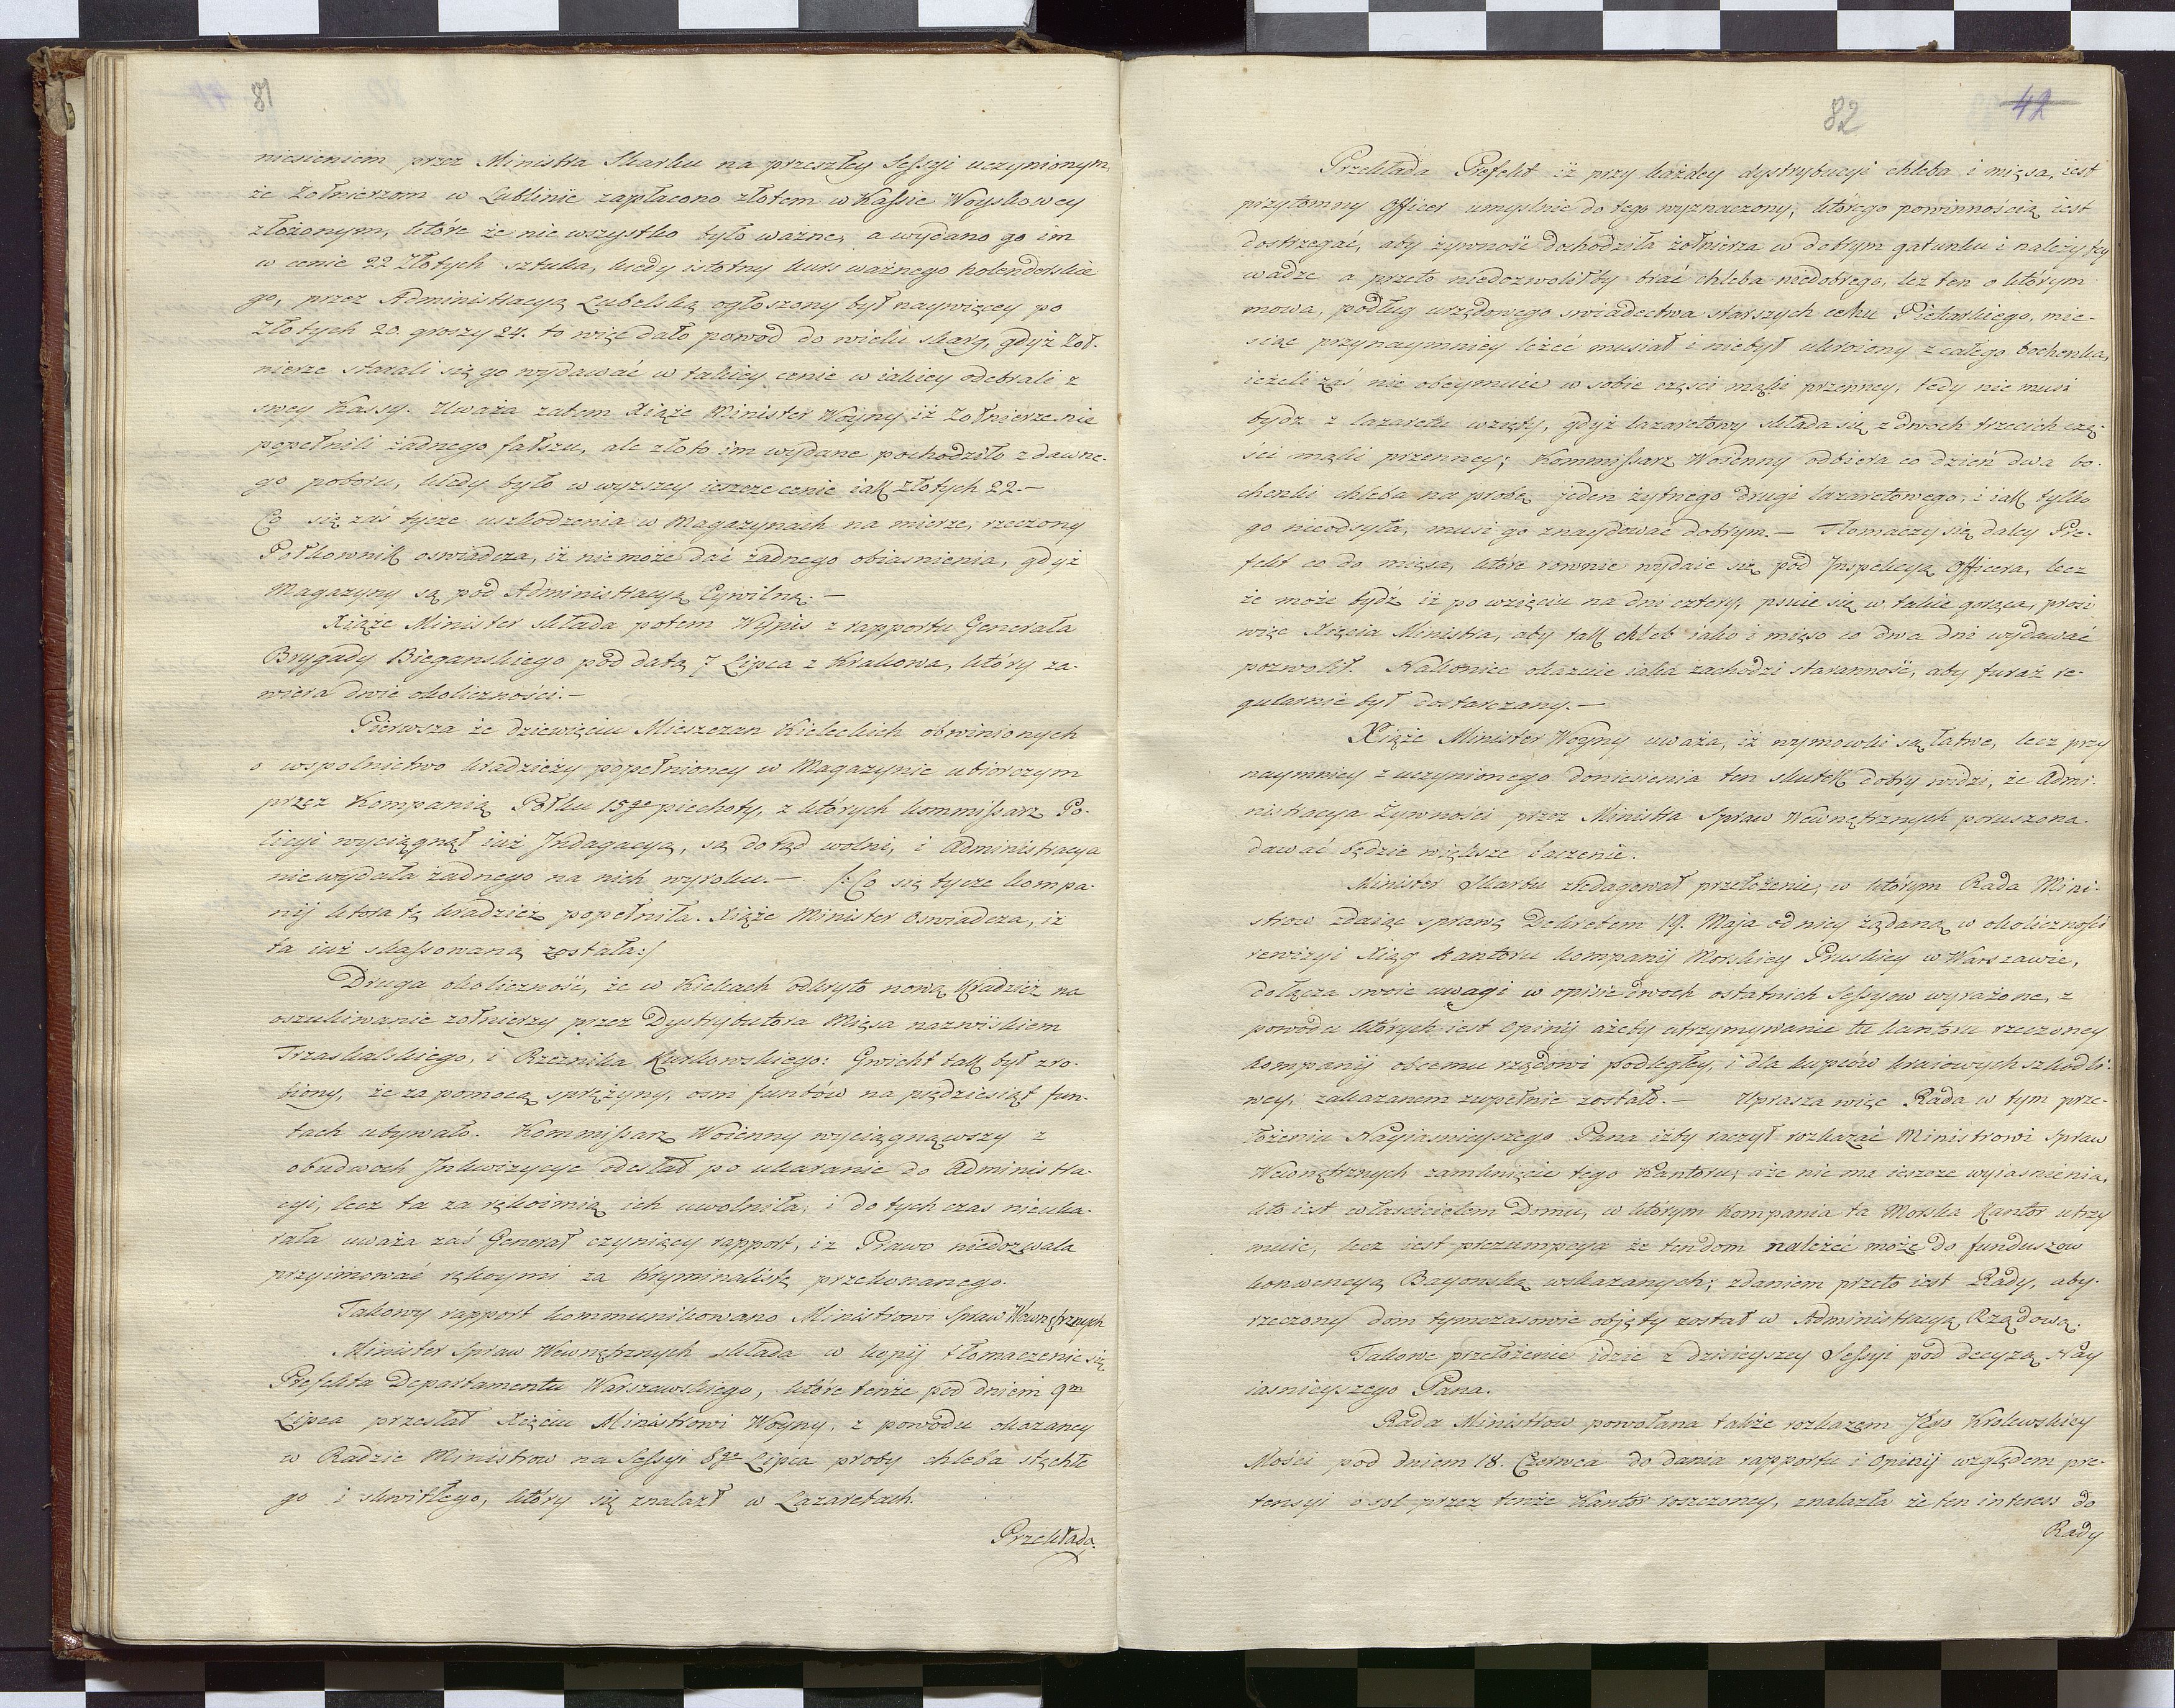 81
niesieniem przez Ministra Skarbu na przeszłey Sessyi uczynionym,
że Żołnierzom w Lublinie zapłacono złotem w Kassie Woyskowey
złożonym, które że nie wszystko było ważne, a wydano go im
w cenie 22 Złotych sztuka, kiedy istotny kurs ważnego holenderskie
go, przez Administracyą Lubelską ogłoszony był naywięcey po
złotych 20. groszy 24. to więc dało powod do wielu skarg, gdyż Żoł-
nierze starali się go wydawać w takiey cenie w iakiey odebrali z
swey Kassy. Uważa zatem Xiąże Minister Woyny iż Żołnierze nie
popełnili żadnego fałszu, ale złoto im wydane pochodziło z dawne-
go poboru, kiedy było w wyzszey ieszcze cenie iak złotych 22.-
Co się zaś tycze uszkodzenia w Magazynach na mierze, rzeczony
Połkownik oswiadcza, iż nie może dać żadnego obiasnienia, gdyż
Magazyny są pod Administracyą Cywilną.-
Xiąże Minister składa potem Wypis z rapportu Generała
Brygady Bieganskiego pod datą 7 Lipca z Krakowa, który za-
wiera dwie okoliczności.-
Pierwsza że dziewięciu Mieszczan Kieleckich obwinionych
o wspolnictwo kradzieży popełnioney w Magazynie ubiorczym
przez Kompanią Pułku 15go piechoty, z których kommissarz Po-
licyi wyciągnął iuż Indagacyą, są dotąd wolni, i Administracya
nie wydała żadnego na nich wyroku.- /:Co się tycze kompa-
nij ktora tę kradzież popełniła. Xiąże Minister Oswiadcza, iż
ta iuż skassowaną została:/
Druga okoliczność, że w Kielcach odkryto nową Kradzież na
oszukiwanie zołnierzy przez Dystrybutora Mięsa nazwiskiem
Trzaskalskiego, i Rzeznika Kurkowskiego: Gwicht tak był zro-
biony, że za pomocą sprężyny, osm funtów na pięćdziesiąt fun-
tach ubywało. Kommissarz Woienny wyciągnąwszy z
obudwoch Inkwizycye odesłał po ukaranie do Administra-
cyi, lecz ta za rękoimią ich uwolniła, i do tych czas nieuka-
rała uważa zaś Generał czyniący rapport, iż Prawo niedozwala
przyimować rękoymi za Kryminalistę przekonanego.
Takowy rapport kommunikowano Ministrowi Spraw Wewnętrznych
Minister Spraw Wewnętrznych składa w kopij tłomaczenie się
Prefekta Departamentu Warszawskiego, które tenże pod dniem 9m
Lipca przesłał Xięciu Ministrowi Woyny, z powodu okazaney
w Radzie Ministrow na Sessyi 8go Lipca proby chleba stęchłe
go i skwitłego, który się znalazł w Lazaretach.
Przekłada
82
42
Przekłada Prefekt iż przy każdey dystrybucyi chleba i mięsa, iest
przytomny Officer umyslnie do tego wyznaczony, którego powinnością iest
dostrzegać, aby żywność dochodziła żołnierza w dobrym gatunku i należytey
wadze a przeto niedozwoliłby brać chleba niedobrego, lez ten o którym
mowa, podług urzędowego swiadectwa starszych cechu Piekarskiego, mie-
siąc przynaymniey leżeć musiał i niebył ukroiony z całego bochenka,
ieżeli zaś nie obeymuie w sobie części mąki przenney, tedy nie musi
bydz z lazaretu wzięty, gdyż lazaretowy składa się z dwoch trzecich czę-
ści mąki przenney; Kommissarz Woienny odbiera co dzień dwa bo-
chenki chleba na probę jeden żytnego drugi lazaretowego, i iak tylko
go nieodsyła, musi go znaydować dobrym.- Tłomaczy się daley Pre-
fekt co do mięsa, które rownie wydaie się pod Inspekcyą Officera, lecz
że może bydź iż po wzięciu na dni cztery, psuie się w takie gorąca, prosi
więc Xięcia Ministra, aby tak chleb iako i mięso co dwa dni wydawać
pozwolił. Nakoniec okazuie iaka zachodzi staranność, aby furaż re-
gularnie był dostarczany.-
Xiąże Minister Woyny uważa, iż wymowki są łatwe, lecz przy
naymniey z uczynionego doniesienia ten skutek dobry widzi, że Admi-
nistracya Żywności przez Ministra Spraw Wewnętrznych poruszona
dawać będzie większe baczenie.
Minister Skarbu zredagował przełożenie, w którym Rada Mini-
strow zdaiąc sprawę Dekretem 19. Maja od niey żądaną w okoliczności
rewizyi Xiąg kantoru kompanij Morskiey Pruskiey w Warszawie,
dołącza swoie uwagi w opisie dwoch ostatnich Sessyow wyrażone, z
powodu których iest Opinij ażeby utrzymywanie tu kantoru rzeczoney
Kompanij obcemu rządowi podległey, i dla kupców kraiowych szkodli-
wey, zakazanem zupełnie zostało.- Uprasza więc Rada w tym prze-
łożeniu Nayiasnieyszego Pana iżby raczył rozkazać Ministrowi Spraw
Wewnętrznych zamknięcie tego Kantoru; a że nie ma ieszcze wyiasnienia,
kto iest właścicielem Domu, w którym Kompania ta Morska Kantor utrzy
muie, lecz iest prezumpcya że ten dom należeć może do funduszow
konwencyą Bayonską wskazanych; zdaniem przeto iest Rady, aby
rzeczony dom tymczasowie objęty został w Administracyą Rządową.
Takowe przełożenie idzie z dzisieyszey Sessyi pod decyzą Nay
iasnieyszego Pana.
Rada Ministrow powołana także rozkazem Jego Krolewskiey
Mości pod dniem 18. Czerwca do dania rapportu i Opinij względem pre-
tensyi o sol przez tenże Kantor roszczoney, znalazła że ten interess do
Rady